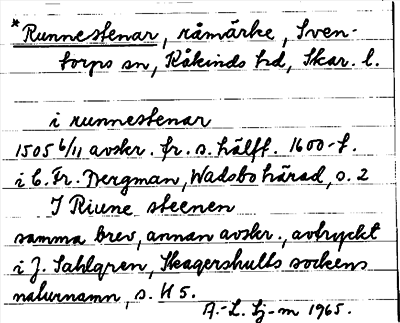 *Runnestenar, råmärke, Sven-
torps sn, Kåkinds hd, Skar. l.
i runnestenar
1505 6/11 avskr. fr. s. hälft. 1600-t.
i C. Fr. Bergman, Wadsbo härad, s. 2
I Riune steenen
samma brev, annan avskr., avtryckt
i J. Sahlgren, Skagershults sockens
naturnamn, s. 45.
A.-L. Lj-m 1965.